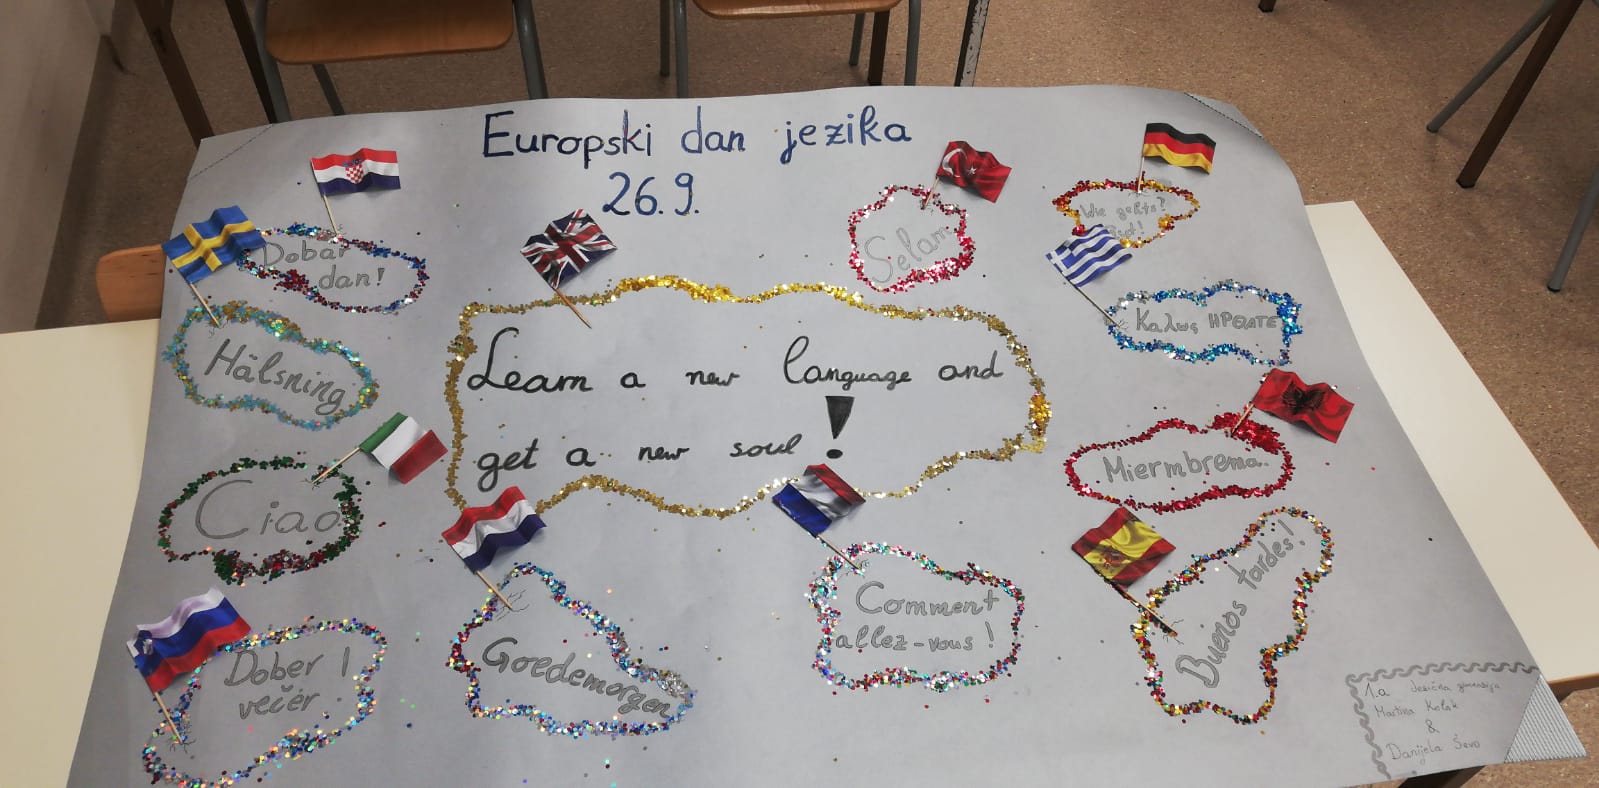 Europski dan jezika
26.9.
Dobar
dan!
Hälsning
Ciao
Dober
večer!
Learn a new language and
get a new soul!
Goedemorgen
Comment
allez-vous!
Selam
Wie gehts?
Καλως ΗΡΘΑΤΕ
Miermbrema.
Buenos tardes!
1.a Jezična gimnazija
Martina Kolak
&
Danijela Ševo